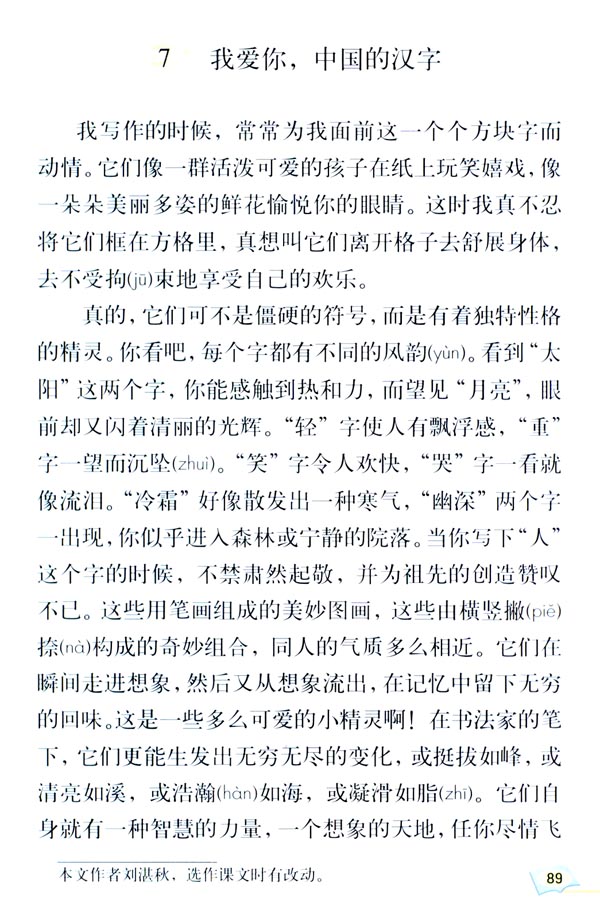 7 我爱你，中国的汉字
我写作的时候，常常为我面前这一个个方块字而
动情。它们像一群活泼可爱的孩子在纸上玩笑嬉戏，像
一朵朵美丽多姿的鲜花愉悦你的眼睛。这时我真不忍
将它们框在方格里，真想叫它们离开格子去舒展身体，
去不受拘(jū)束地享受自己的欢乐。
真的，它们可不是僵硬的符号，而是有着独特性格
的精灵。你看吧，每个字都有不同的风韵(yùn)。看到“太
阳”这两个字，你能感触到热和力，而望见“月亮”，眼
前却又闪着清丽的光辉。“轻”字使人有飘浮感，“重”
字一望而沉坠(zhuì)。“笑”字令人欢快，“哭”字一看就
像流泪。“冷霜”好像散发出一种寒气，“幽深”两个字
一出现，你似乎进入森林或宁静的院落。当你写下“人”
这个字的时候，不禁肃然起敬，并为祖先的创造赞叹
不已。这些用笔画组成的美妙图画，这些由横竖撇(piě)
捺(nà)构成的奇妙组合，同人的气质多么相近。它们在
瞬间走进想象，然后又从想象流出，在记忆中留下无穷
的回味。这是一些多么可爱的小精灵啊！在书法家的笔
下，它们更能生发出无穷无尽的变化，或挺拔如峰，或
清亮如溪，或浩瀚(hàn)如海，或凝滑如脂(zhī)。它们自
身就有一种智慧的力量，一个想象的天地，任你尽情飞
本文作者刘湛秋，选作课文时有改动。
89